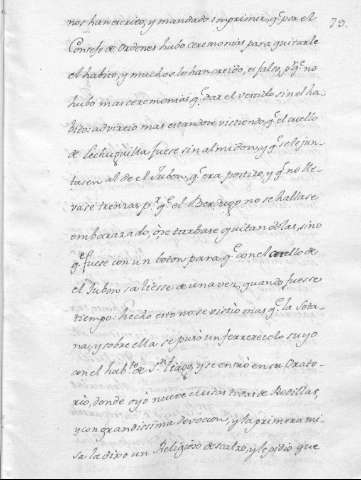 73.
nos han escrito, y mandado imprimir, q.e por el
Consejo de Ordenes hubo ceremonias para quitarle
el habito, y muchos lo han creido, es falso, p.r q.e no
hubo mas ceremonias q.e dar el vestido sin el ha
bito: advirtio mas estandose vistiendo, q.e el cuello
de lechuguilla fuese sin almidon, y q.e se le jun
tasen al de el Jubon, q.e era postizo, y q.e no lle
vase trenzas p.r q.e el Berdugo no se hallase
embarazado, ò se turbase quitandolas, sino
q.e fuese con un boton para q.e con el cuello de
el Jubon saliesse de una vez, quando fuesse
tiempo. Hecho esto no se vistio mas q.e la Sota
na, y sobre ella se puso un ferreruelo suyo
con el hab.to de S.n Tiago, y se entrò en su Orato
rio, donde oyò nueve Missas todas de Rodillas,
y con grandissima devocion, y la primera mi
sa la dixo un Religioso descalzo, y le pidio que